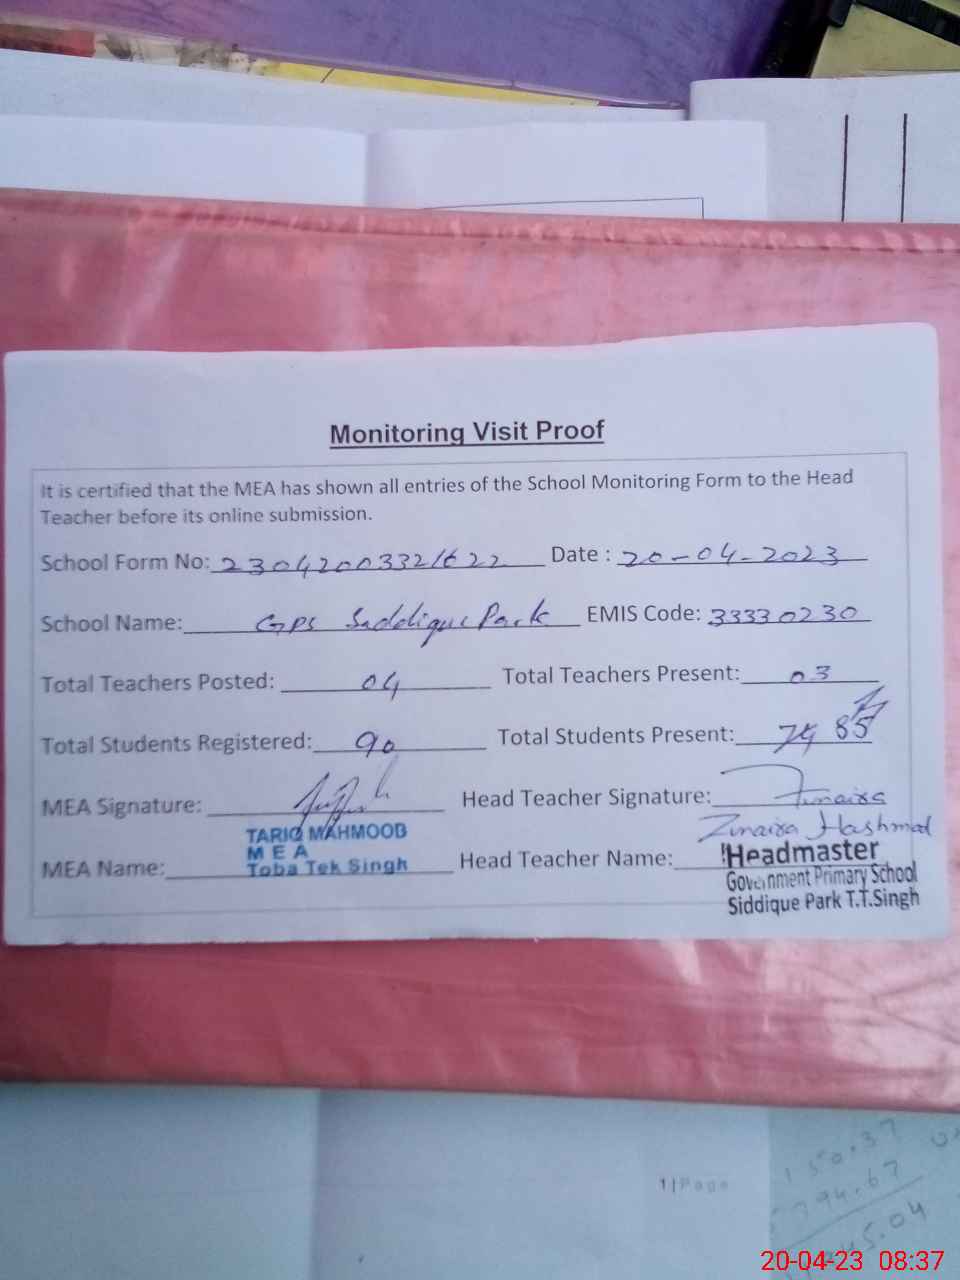 Monitoring Visit Proof
It is certified that the MEA has shown all entries of the School Monitoring Form to the Head
Teacher before its online submission.
School Form No: 23042003321622 Date : 20-04-2023
School Name: GPS Saddique Park EMIS Code: 33330230
Total Teachers Posted: 04 Total Teachers Present: 03
Total Students Registered: 90 Total Students Present: 85
MEA Signature: Head Teacher Signature: Zunaira
Zunaira Hashmat
MEA Name: TARIQ MAHMOOB Head Teacher Name: Headmaster
M E A Government Primary School
Toba Tek Singh Siddique Park T.T.Singh
1 | Page
150.37
794.67
45.04
20-04-23 08:37